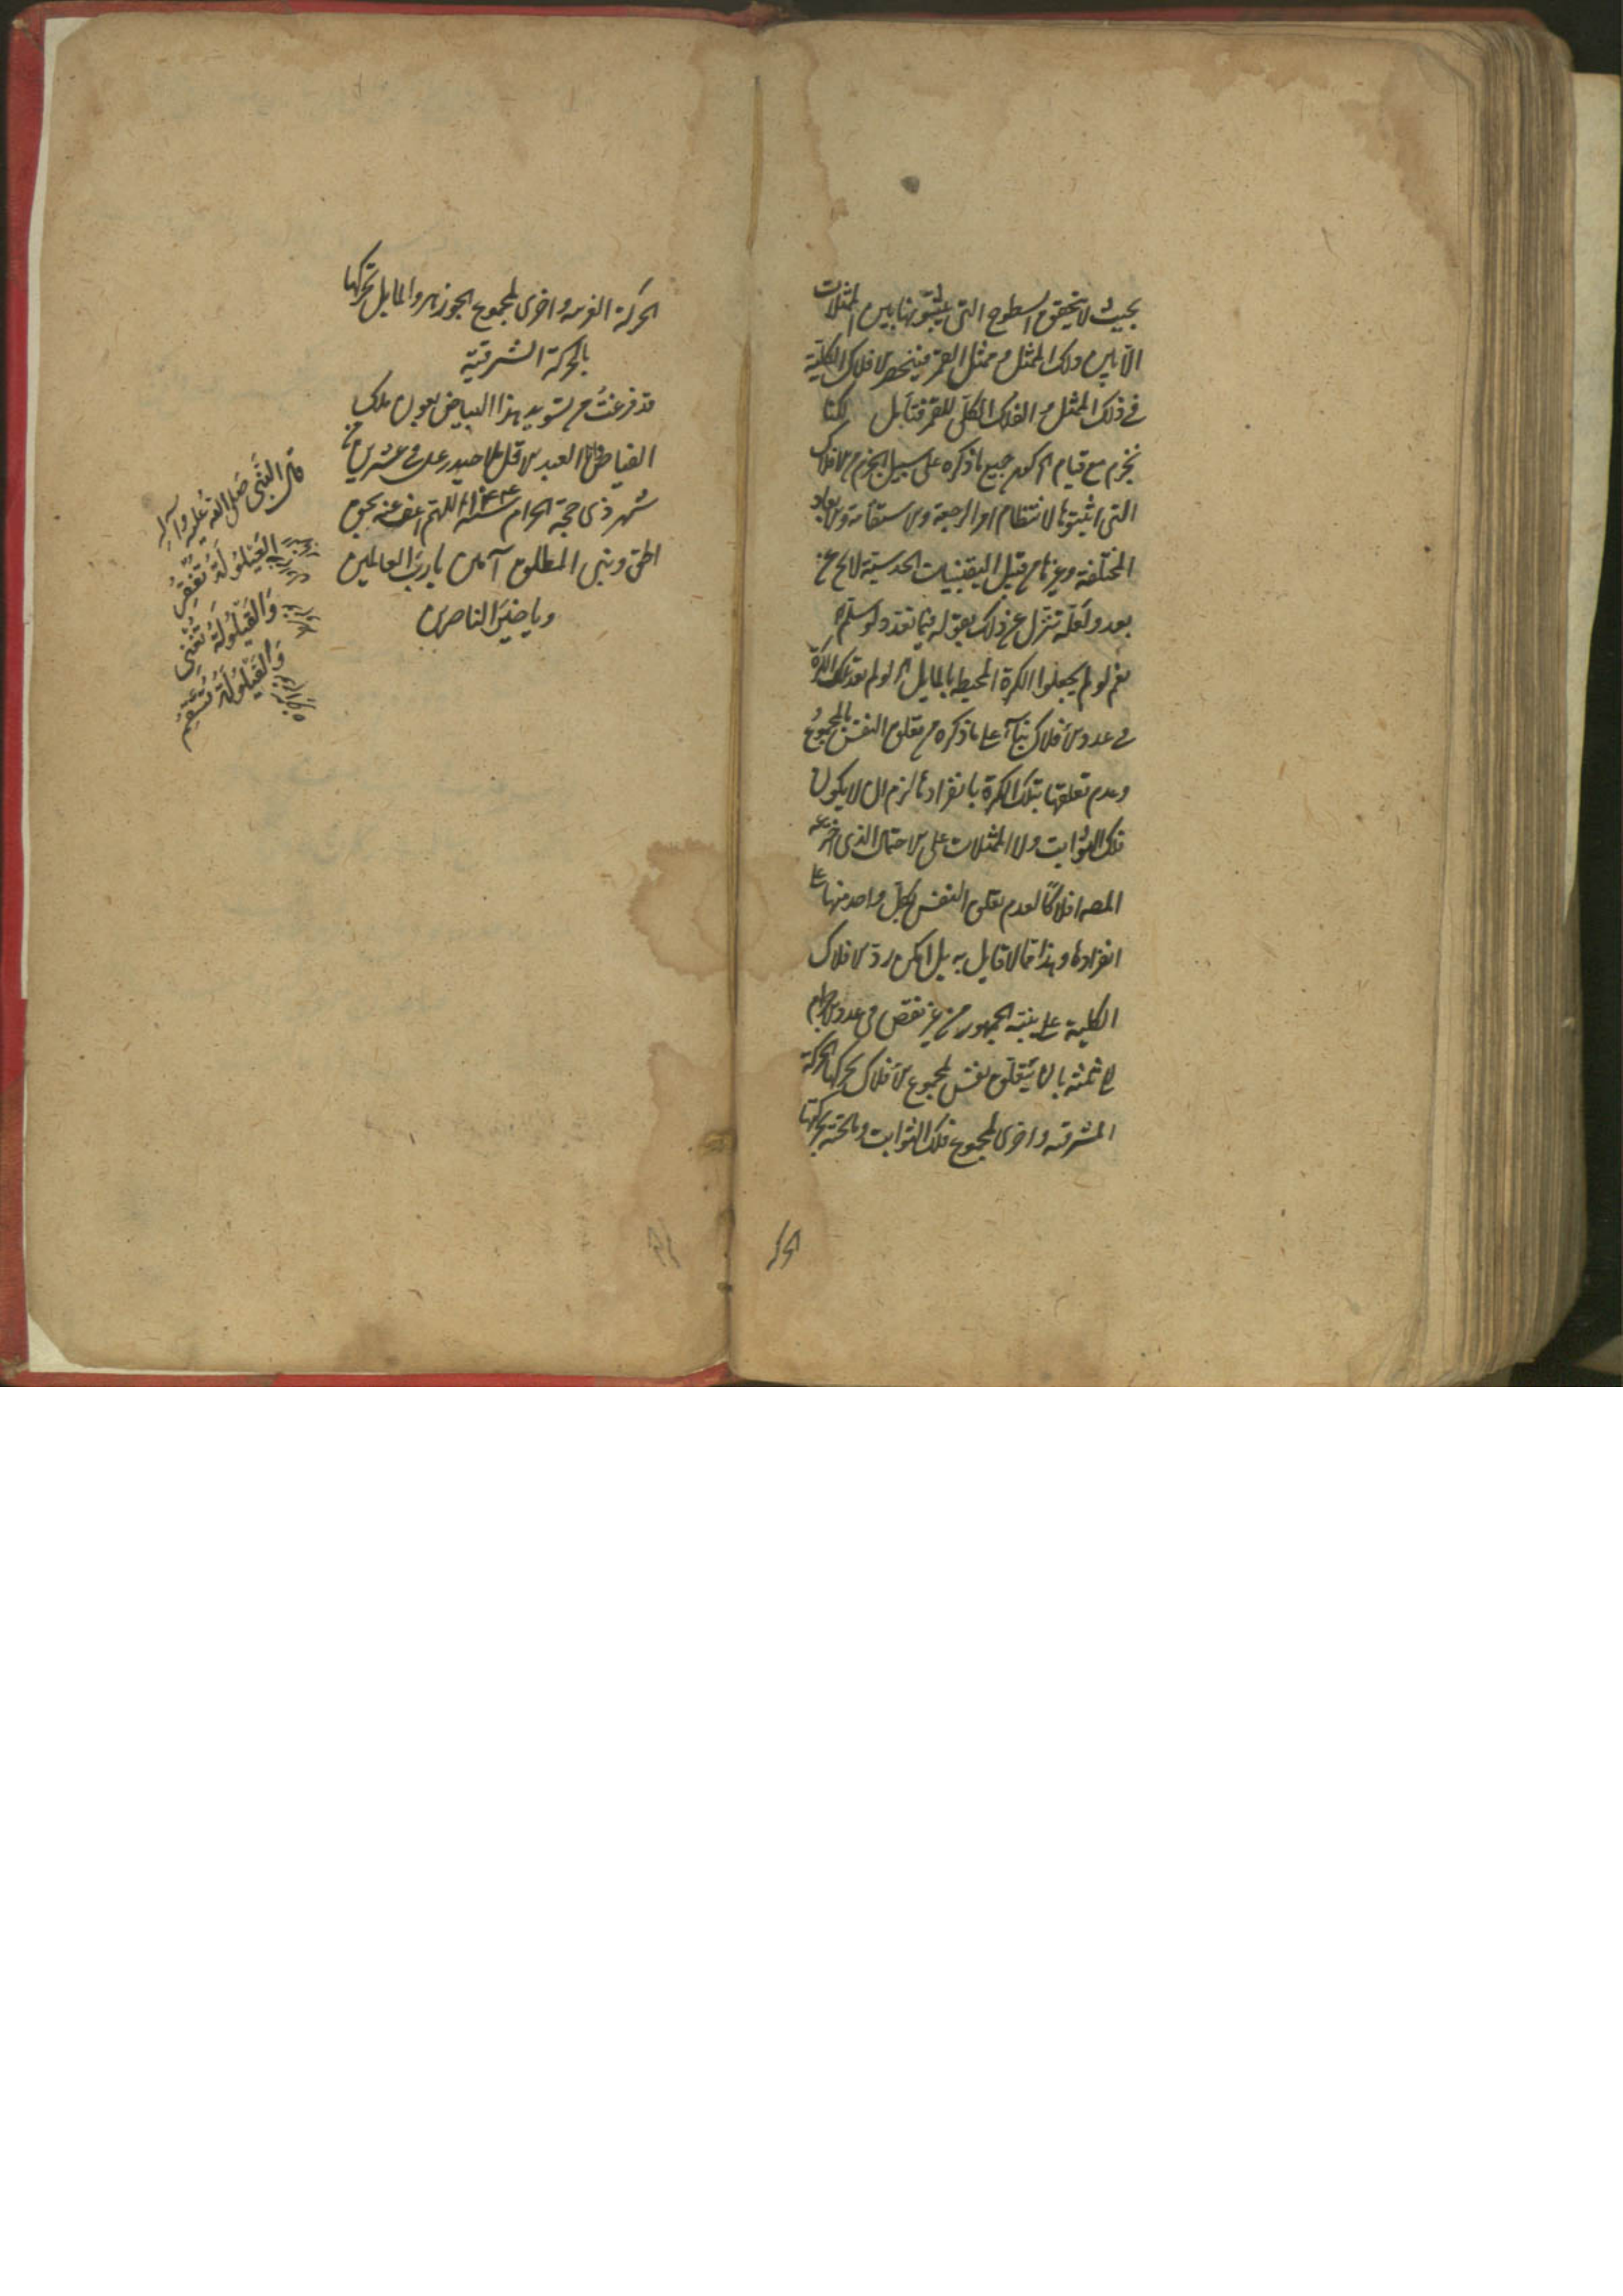 بحيث لا يتحقق السطوح التى يثبتونها بين الممثلات
الا بين ذلك الممثل و ممثل القمر فينحصر الافلاك الكلية
في ذلك الممثل و الفلك الكلى للقمر فتأمل لكنا
نجزم مع قيام جميع ما ذكره على سبيل الجزم الافلاك
التى اثبتوها لانتظام امر الرجعة والاستقامة والابعاد
المختلفة وغيرها من قبيل اليقينيات الحدسية لا يخ عن
بعد ولعله تنزل عن ذلك بقوله فيما بعد ولو سلم
نعم لو لم يجعلوا الكرة المحيطة بالمايل اى لو لم تعد تلك الكرة
فى عدد الافلاك بناء على ما ذكره من تعلق النفس بالمجموع
وعدم تعلقها بتلك الكرة بانفرادها لزم ان لا يكون
فلك الثوابت ولا الممثلات على الاحتمال الذى اخترعه
المصـ افلاكا لعدم تعلق النفس بكل واحد منها على
انفرادها وهذا مما لا قايل به بل امكن رد الافلاك
الكلية على الجمهور من غير نقص فى عدد الاجرام
الى ثمنه بان يتعلق نفس لمجموع الافلاك يحركها الحركة
المشرقيه واخرى لمجموع فلك الثوابت وما تحته يحركها
الحركة الغربيه واخرى لمجموع الجوزهر والمايل تحركها
بالحركة الشرقية
قد فرغت من تسويد هذا البياض بعون ملك
الفياض وانا العبد الاقل حيدر على فى عشرين من
شهر ذى حجة الحرام سنة اللهم اغفر عنه بحق
وبنى المطلوم آمين يا رب العالمين
ويا خير الناصرين
قال النبى صلى الله عليه وآله
العيلولة تفقر
والقيلولة تغنى
والفيلولة تسقم